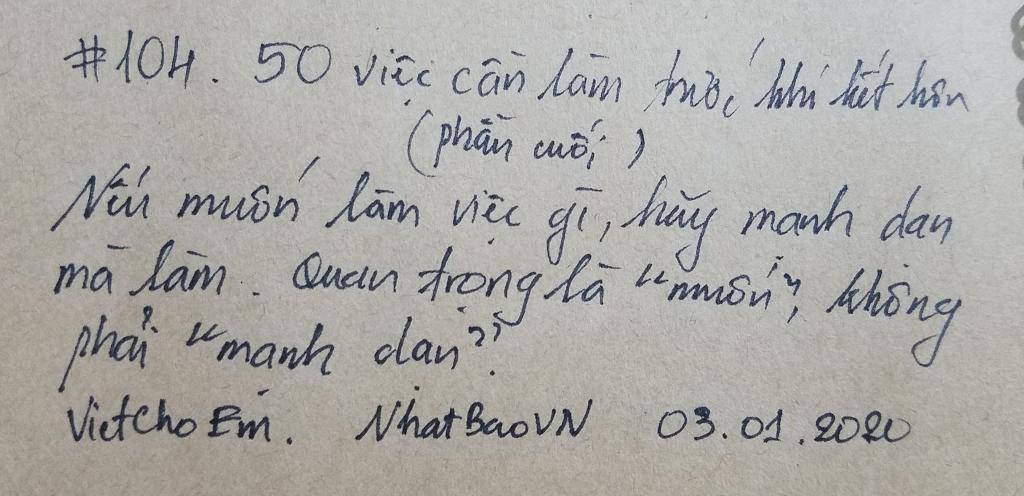 #104. 50 việc cần làm trước khi kết hôn
(phần cuối)
Nếu muốn làm việc gì, hãy mạnh dạn
mà làm. Quan trọng là "muốn", không
phải "mạnh dạn".
VietChoEm. NhatBaoVN 03.01.2020